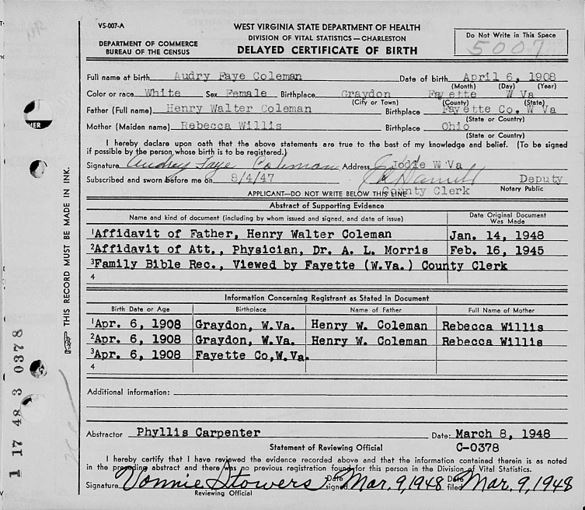 VS-007-A
WEST VIRGINIA STATE DEPARTMENT OF HEALTH
DEPARTMENT OF COMMERCE
BUREAU OF THE CENSUS
DIVISION OF VITAL STATISTICS—CHARLESTON
DELAYED CERTIFICATE OF BIRTH
Do Not Write in This Space
5007
Full name at birth Audry Faye Coleman Date of birth April 6, 1908
(Month) (Day) (Year)
Color or race White Sex Female Birthplace Graydon Fayette W Va
(City or Town) (County) (State)
Father (Full name) Henry Walter Coleman Birthplace Fayette Co. W Va
(State or Country)
Mother (Maiden name) Rebecca Willis Birthplace Ohio
(State or Country)
I hereby declare upon oath that the above statements are true to the best of my knowledge and belief. (To be signed
if possible by the person whose birth is to be registered.)
Signature Audrey Faye Coleman Address Jodie W Va
Subscribed and sworn before me on 8/4/47 Deputy
Notary Public
County Clerk
APPLICANT—DO NOT WRITE BELOW THIS LINE
Abstract of Supporting Evidence
Name and kind of document (including by whom issued and signed, and date of issue) Date Original Document Was Made
1 Affidavit of Father, Henry Walter Coleman Jan. 14, 1948
2 Affidavit of Att., Physician, Dr. A. L. Morris Feb. 16, 1945
3 Family Bible Rec., Viewed by Fayette (W.Va.) County Clerk
4
Information Concerning Registrant as Stated in Document
Birth Date or Age Birthplace Name of Father Full Name of Mother
1 Apr. 6, 1908 Graydon, W.Va. Henry W. Coleman Rebecca Willis
2 Apr. 6, 1908 Graydon, W.Va. Henry W. Coleman Rebecca Willis
3 Apr. 6, 1908 Fayette Co,W.Va.
4
Additional information:
Abstractor Phyllis Carpenter Date: March 8, 1948
Statement of Reviewing Official C-0378
I hereby certify that I have reviewed the evidence recorded above and that the information contained herein is as noted
in the preceding abstract and there was no previous registration found for this person in the Division of Vital Statistics.
Signature Vonnie Stowers Date signed Mar. 9, 1948 Date filed Mar. 9, 1948
Reviewing Official
THIS RECORD MUST BE MADE IN INK.
1 17 48 3 0378